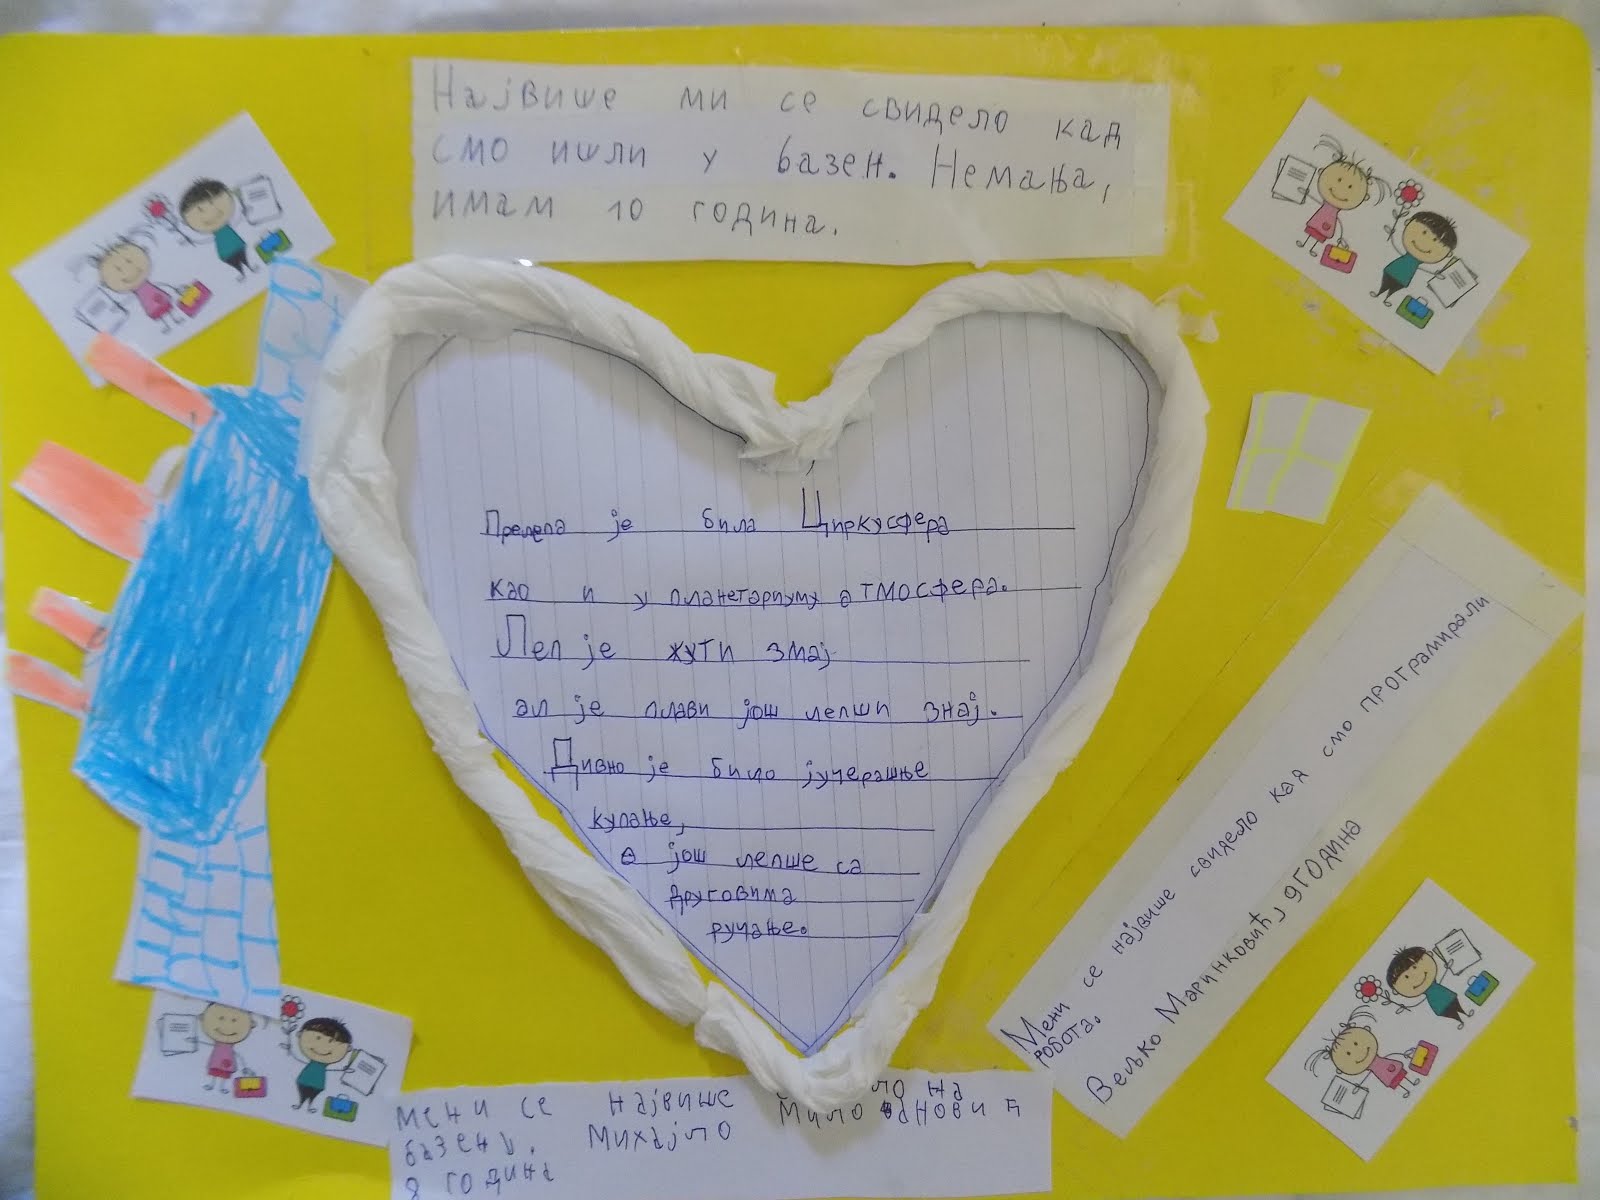 Највише ми се свидело кад
смо ишли у базен. Немања,
имам 10 година.
Прелепа је била Циркусфера
као и у планетаријуму атмосфера.
Леп је жути змај
ал је плави још лепши знај.
Дивно је било јучерашње
купање,
а још лепше са
друговима
ручање.
Мени се највише свидело кад смо програмирали
робота.
Вељко Маринковић, 9 година
мени се највише ло на
базену. Михајло Миловановић
8 година